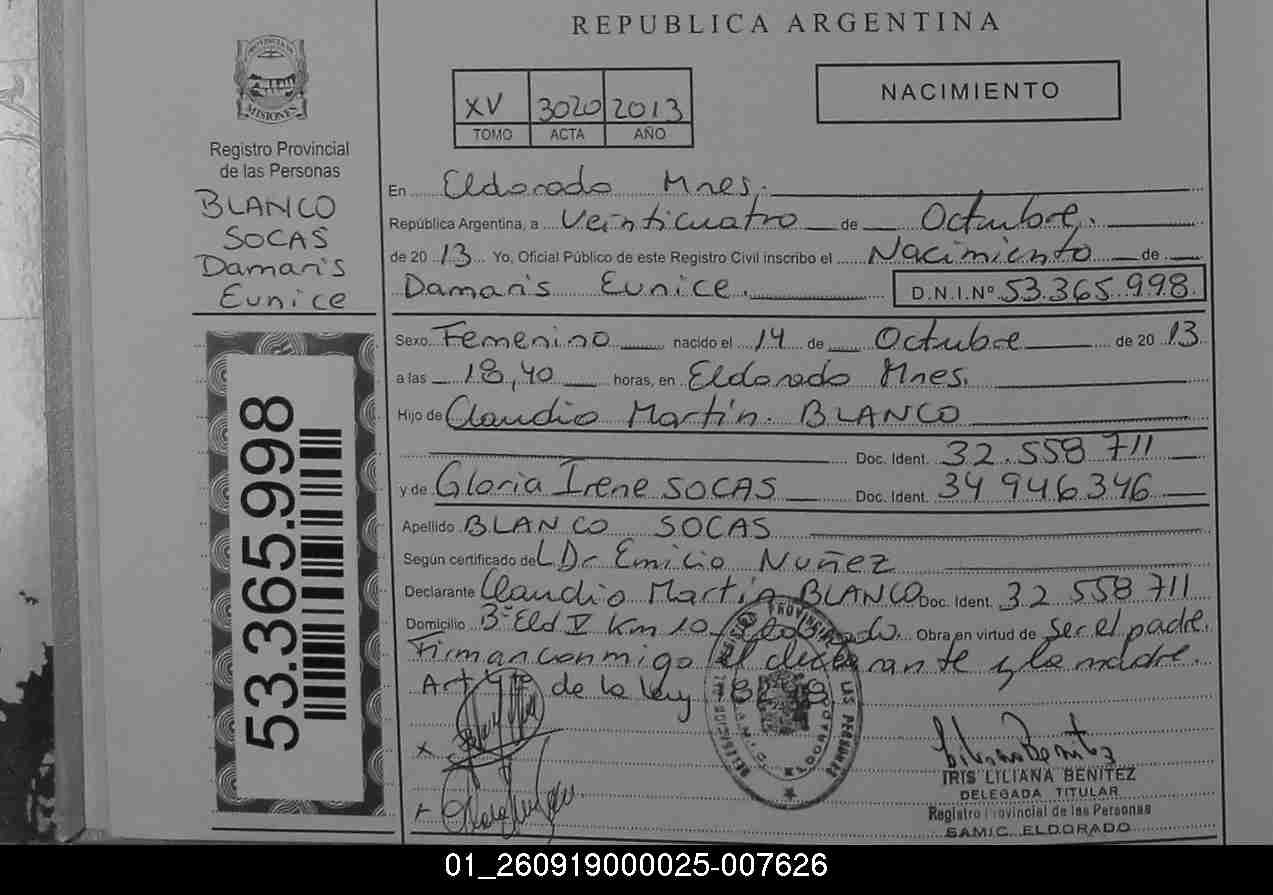 REPUBLICA ARGENTINA
PROVINCIA DE
MISIONES
Registro Provincial
de las Personas
BLANCO
SOCAS
Damaris
Eunice
53.365.998
XV 3020 2013
TOMO ACTA AÑO
NACIMIENTO
En Eldorado Mnes.
República Argentina, a Veinticuatro de Octubre.
de 2013 Yo, Oficial Público de este Registro Civil inscribo el Nacimiento de
Damaris Eunice. D.N.I.Nº 53.365.998
Sexo Femenino nacido el 14 de Octubre de 2013
a las 18,40 horas, en Eldorado Mnes.
Hijo de Claudio Martín BLANCO
Doc. Ident. 32.558 711
y de Gloria Irene SOCAS Doc. Ident. 34 946 346
Apellido BLANCO SOCAS
Según certificado de Dr Emilio Nuñez
Declarante Claudio Martín BLANCO Doc. Ident. 32 558 711
Domicilio Km 10 Eldorado Obra en virtud de ser el padre.
Firman conmigo el declarante y la madre.
Art de la ley
REGISTRO PROVINCIAL DE LAS PERSONAS
ELDORADO
IRIS LILIANA BENITEZ
DELEGADA TITULAR
Registro Provincial de las Personas
SAMIC ELDORADO
01_260919000025-007626